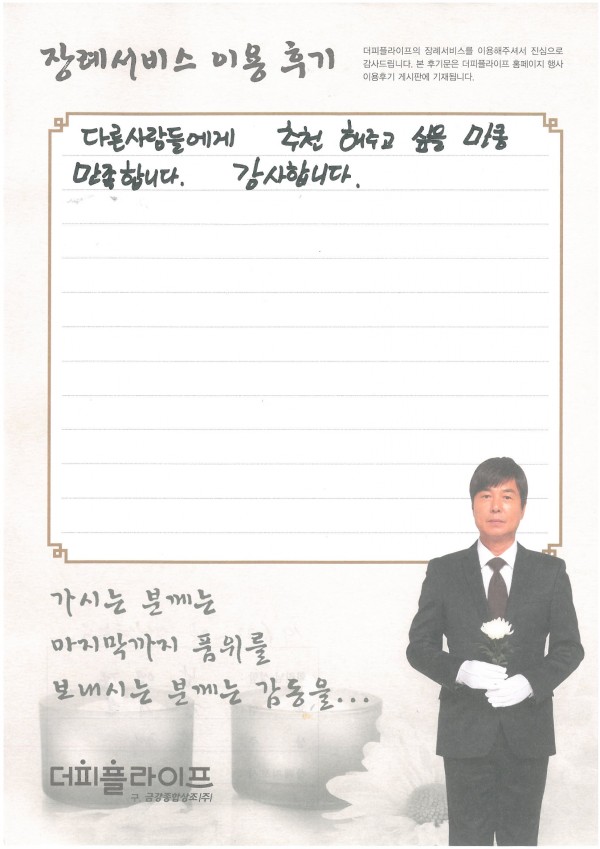 장례서비스 이용 후기
더피플라이프의 장례서비스를 이용해주셔서 진심으로
감사드립니다. 본 후기문은 더피플라이프 홈페이지 행사
이용후기 게시판에 기재됩니다.
다른사람들에게 추천 해주고 싶을 만큼
만족합니다. 감사합니다.
가시는 분께는
마지막까지 품위를
보내시는 분께는 감동을...
더피플라이프
구. 금강종합상조(주)